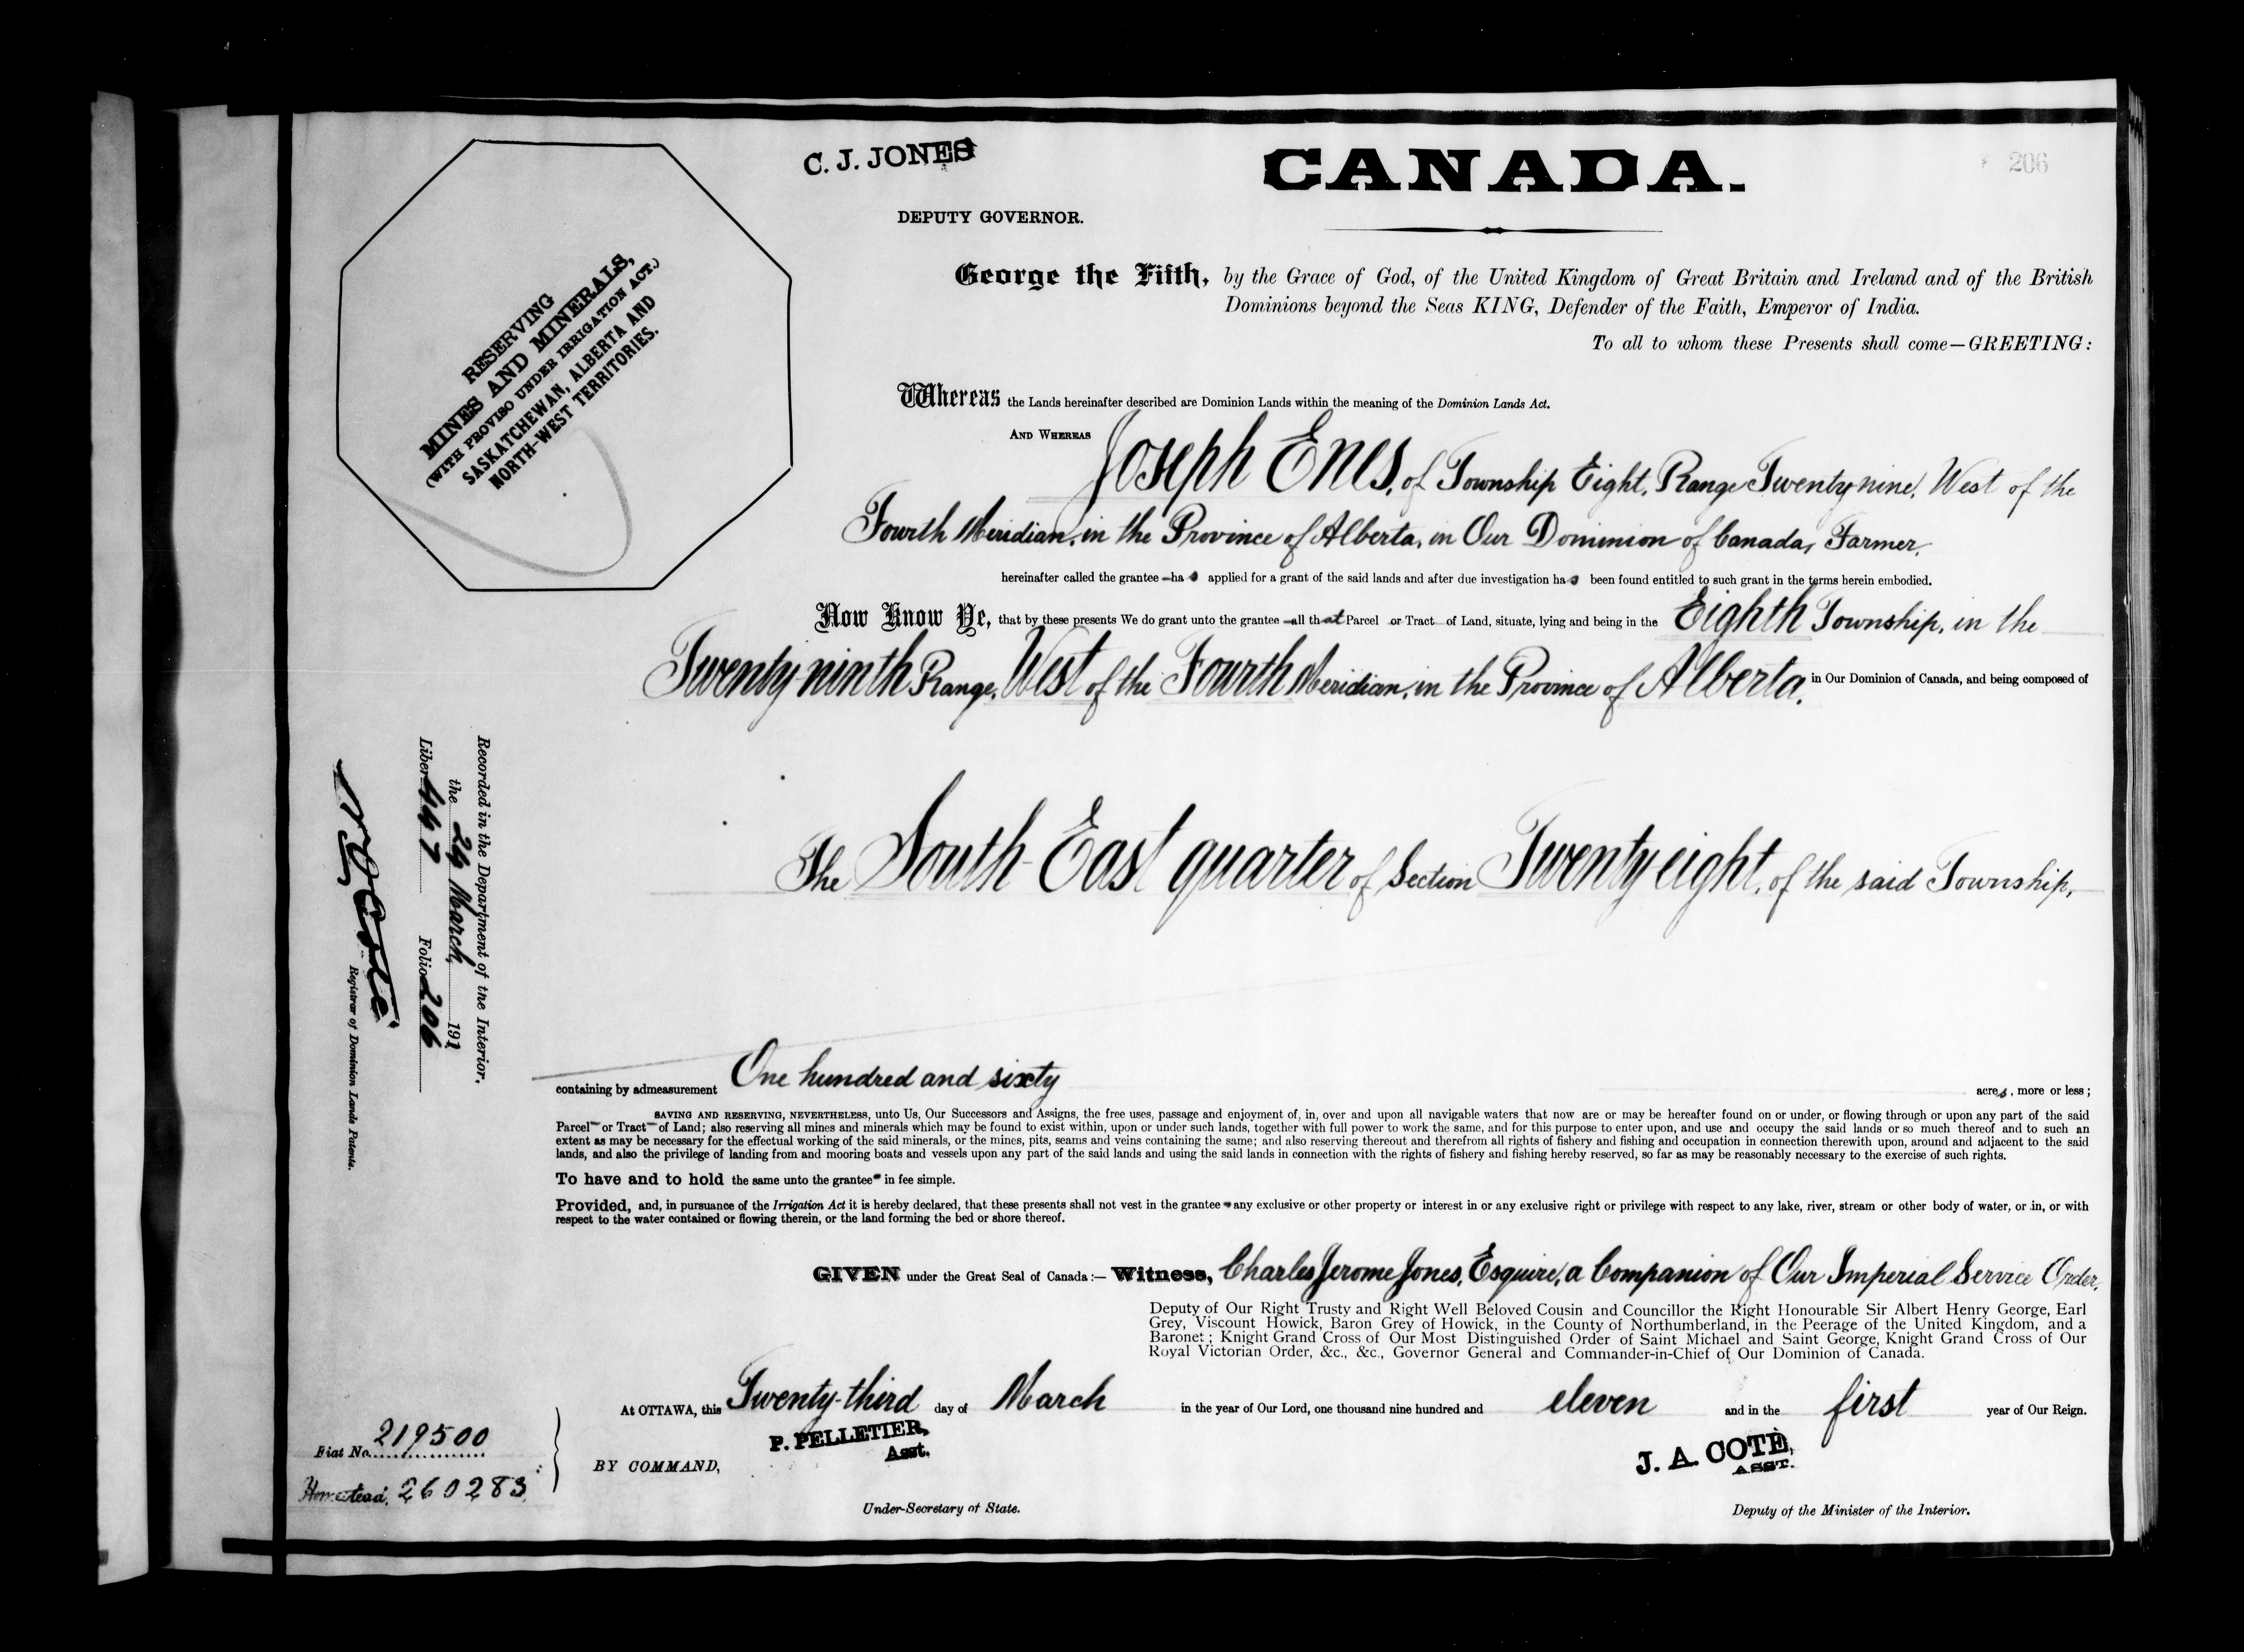 C. J. JONES
DEPUTY GOVERNOR.
CANADA.
206
RESERVING
MINES AND MINERALS,
(WITH PROVISO UNDER IRRIGATION ACT.)
SASKATCHEWAN, ALBERTA AND
NORTH-WEST TERRITORIES.
George the Fifth, by the Grace of God, of the United Kingdom of Great Britain and Ireland and of the British
Dominions beyond the Seas KING, Defender of the Faith, Emperor of India.
To all to whom these Presents shall come—GREETING:
Whereas the Lands hereinafter described are Dominion Lands within the meaning of the Dominion Lands Act.
AND WHEREAS Joseph Enes, of Township Eight, Range Twenty nine, West of the
Fourth Meridian, in the Province of Alberta, in Our Dominion of Canada, Farmer,
hereinafter called the grantee has applied for a grant of the said lands and after due investigation has been found entitled to such grant in the terms herein embodied.
Now Know Ye, that by these presents We do grant unto the grantee all that Parcel or Tract of Land, situate, lying and being in the Eighth Township, in the
Twenty ninth Range, West of the Fourth Meridian, in the Province of Alberta, in Our Dominion of Canada, and being composed of
The South-East quarter of Section Twenty eight, of the said Township,
containing by admeasurement One hundred and sixty acres, more or less;
SAVING AND RESERVING, NEVERTHELESS, unto Us, Our Successors and Assigns, the free uses, passage and enjoyment of, in, over and upon all navigable waters that now are or may be hereafter found on or under, or flowing through or upon any part of the said
Parcel or Tract of Land; also reserving all mines and minerals which may be found to exist within, upon or under such lands, together with full power to work the same, and for this purpose to enter upon, and use and occupy the said lands or so much thereof and to such an
extent as may be necessary for the effectual working of the said minerals, or the mines, pits, seams and veins containing the same; and also reserving thereout and therefrom all rights of fishery and fishing and occupation in connection therewith upon, around and adjacent to the said
lands, and also the privilege of landing from and mooring boats and vessels upon any part of the said lands and using the said lands in connection with the rights of fishery and fishing hereby reserved, so far as may be reasonably necessary to the exercise of such rights.
To have and to hold the same unto the grantee in fee simple.
Provided, and, in pursuance of the Irrigation Act it is hereby declared, that these presents shall not vest in the grantee any exclusive or other property or interest in or any exclusive right or privilege with respect to any lake, river, stream or other body of water, or in, or with
respect to the water contained or flowing therein, or the land forming the bed or shore thereof.
GIVEN under the Great Seal of Canada:— Witness, Charles Jerome Jones, Esquire, a Companion of Our Imperial Service Order,
Deputy of Our Right Trusty and Right Well Beloved Cousin and Councillor the Right Honourable Sir Albert Henry George, Earl
Grey, Viscount Howick, Baron Grey of Howick, in the County of Northumberland, in the Peerage of the United Kingdom, and a
Baronet; Knight Grand Cross of Our Most Distinguished Order of Saint Michael and Saint George, Knight Grand Cross of Our
Royal Victorian Order, &c., &c., Governor General and Commander-in-Chief of Our Dominion of Canada.
At OTTAWA, this Twenty-third day of March in the year of Our Lord, one thousand nine hundred and eleven and in the first year of Our Reign.
P. PELLETIER,
Asst.
BY COMMAND,
Under-Secretary of State.
J. A. COTÉ,
ASST.
Deputy of the Minister of the Interior.
Recorded in the Department of the Interior,
the 29 March, 1911
Liber 447 Folio 206
N. O. Coté
Registrar of Dominion Lands Patents.
Fiat No. 219500
Homestead, 260283